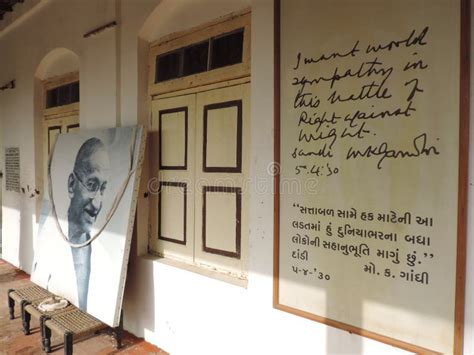 I want world
sympathy in
this battle of
Right against
might.
Dandi MKGandhi
5.4.'30
“સત્તાબળ સામે હક માટેની આ
લડતમાં હું દુનિયાભરના બધા
લોકોની સહાનુભૂતિ માગું છું.”
દાંડી
૫-૪-'૩૦ મો. ક. ગાંધી
dreamstime